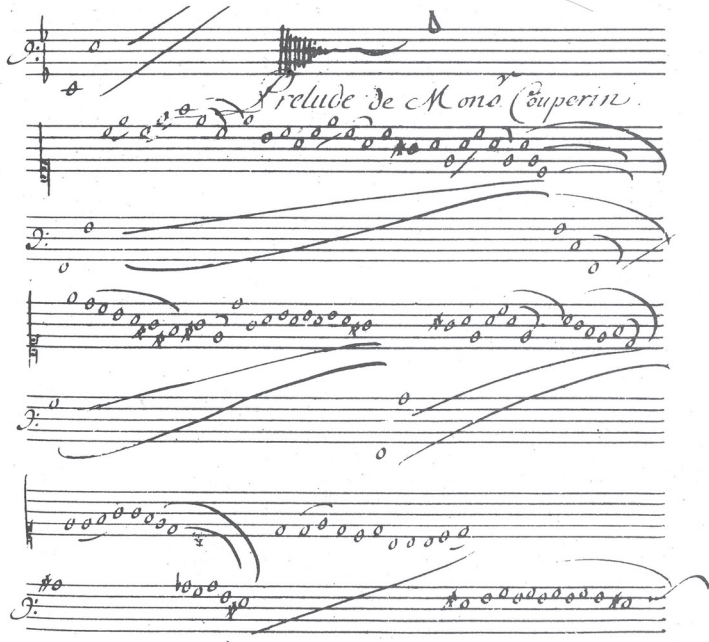 Prelude de Monsr Couperin.